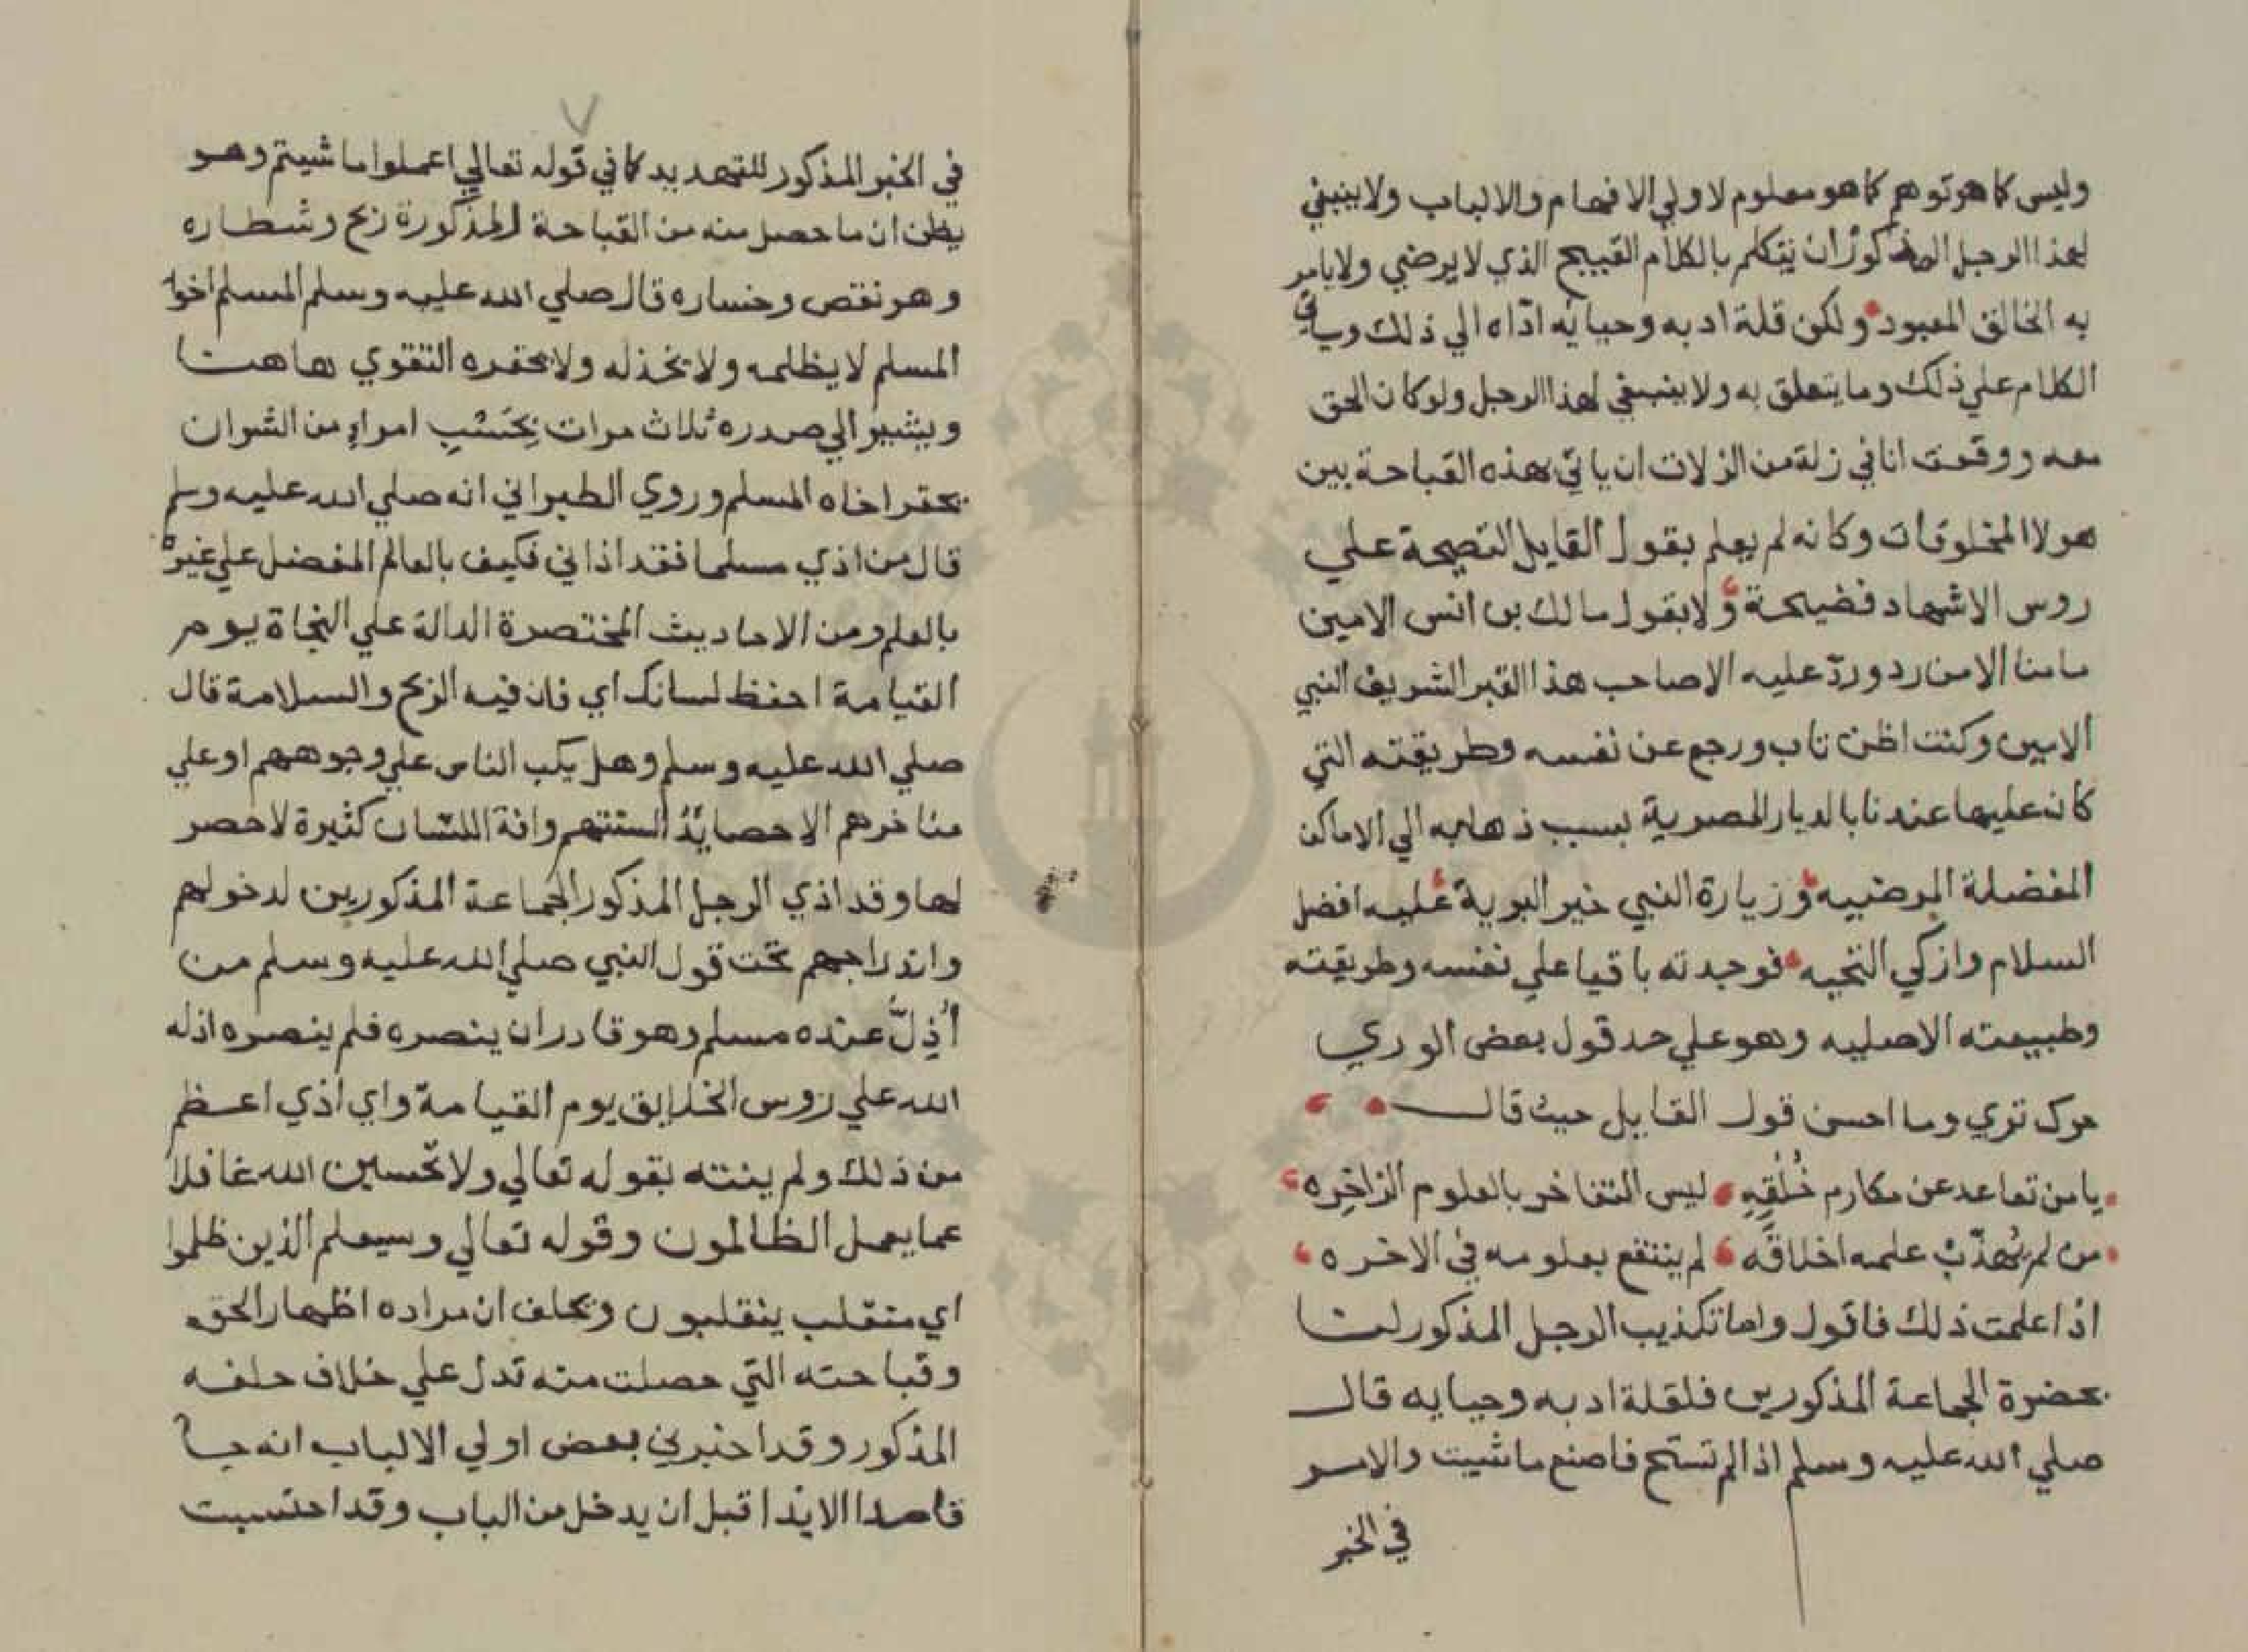 وليس كما هو توهم كما هو معلوم لاولي الافهام والالباب ولا ينبغي
لهذا الرجل المذكور ان يتكلم بالكلام القبيح الذي لا يرضي ولا يامر
به الخالق المعبود ولكن قلة ادبه وحيايه ادّاه الي ذلك وياتي
الكلام علي ذلك وما يتعلق به ولا ينبغي لهذا الرجل ولو كان الحق
معه ووقعت انا في زلة من الزلات ان ياتي بهذه القباحة بين
هولا المخلوقات وكانه لم يعلم بقول القايل النصيحة علي
روس الاشهاد فضيحة ولا بقول مالك بن انس الامين
ما منا الا من رد وردّ عليه الا صاحب هذا القبر الشريف النبي
الامين وكنت اظن تاب ورجع عن نفسه وطريقته التي
كان عليها عندنا بالديار المصرية بسبب ذهابه الي الاماكن
المفضلة المرضيه وزيارة النبي خير البرية عليه افضل
السلام وازكي التحيه فوجدته باقيا علي نفسه وطريقته
وطبيعته الاصليه وهو علي حد قول بعض الوري
حرك تري وما احسن قول القايل حيث قال
يا من تقاعد عن مكارم خُلْقِهِ ليس التفاخر بالعلوم الزاخِره
من لم يُهذّبْ علمه اخلاقَه لم ينتفع بعلومه في الاخره
اذا علمت ذلك فاقول واما تكذيب الرجل المذكور لنا
بحضرة الجماعة المذكورين فلقلة ادبه وحيايه قال
صلي الله عليه وسلم اذا لم تستح فاصنع ما شيت والامر
في الخبر
في الخبر المذكور للتهديد كما في قوله تعالي اعملوا ما شيتم وهو
يظن ان ما حصل منه من القباحة المذكورة ربح وشطاره
وهو نقص وخساره قال صلي الله عليه وسلم المسلم اخو
المسلم لا يظلمه ولا يخذله ولا يحقره التقوي هاهنا
ويشير الي صدره ثلاث مرات بِحَسْبِ امراءٍ من الشر ان
يحقر اخاه المسلم وروي الطبراني انه صلي الله عليه وسلم
قال من اذي مسلما فقد اذاني فكيف بالعالم المفضل علي غيره
بالعلم ومن الاحاديث المختصرة الدالة علي النجاة يوم
القيامة احفظ لسانك اي فان فيه الربح والسلامة قال
صلي الله عليه وسلم وهل يكب الناس علي وجوههم او علي
مناخرهم الا حصايدُ السنتهم وافة اللسان كثيرة لا حصر
لها وقد اذي الرجل المذكور الجماعة المذكورين لدخولهم
واندراجهم تحت قول النبي صلي الله عليه وسلم من
أُذِلّ عنده مسلم وهو قادر ان ينصره فلم ينصره اذله
الله علي روس الخلايق يوم القيامة واي اذي اعظم
من ذلك ولم ينته بقوله تعالي ولا تحسبن الله غافلا
عما يعمل الظالمون وقوله تعالي وسيعلم الذين ظلموا
اي منقلب ينقلبون ويحلف ان مراده اظهار الحق
وقباحته التي حصلت منه تدل علي خلاف حلفه
المذكور وقد اخبرني بعض اولي الالباب انه جا
قاصدا الايذا قبل ان يدخل من الباب وقد احتسبت